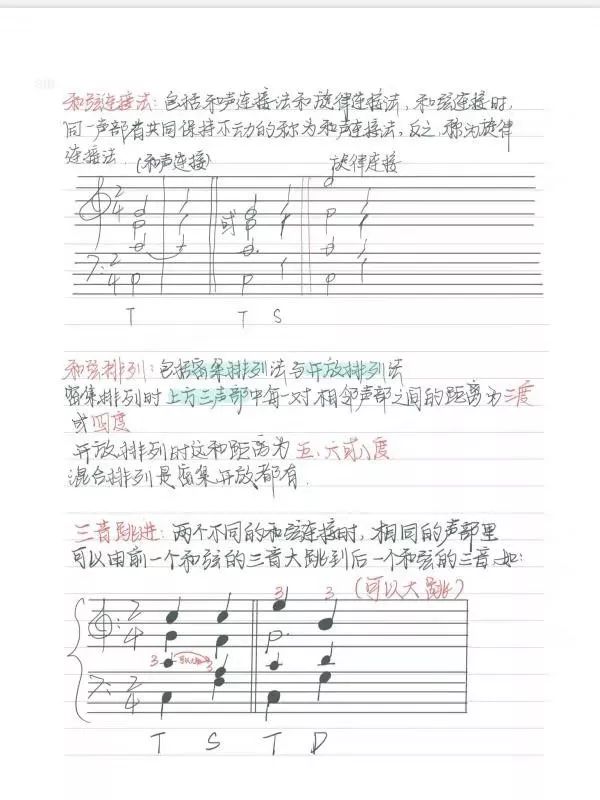 和弦连接法：包括和声连接法和旋律连接法，和弦连接时，
同一声部若共同保持不动的称为和声连接法，反之，称为旋律
连接法.
(和声连接) 旋律连接
2 4
或
2 4
T T S
和弦排列：包括密集排列法与开放排列法
密集排列时上方三声部中每一对相邻声部之间的距离为三度
或四度
开放排列时这种距离为五、六或八度
混合排列是密集开放都有.
三音跳进：两个不同的和弦连接时，相同的声部里
可以由前一个和弦的三音大跳到后一个和弦的三音，如：
3 3 (可以大跳)
2 4
3 3
2 4
T S T D